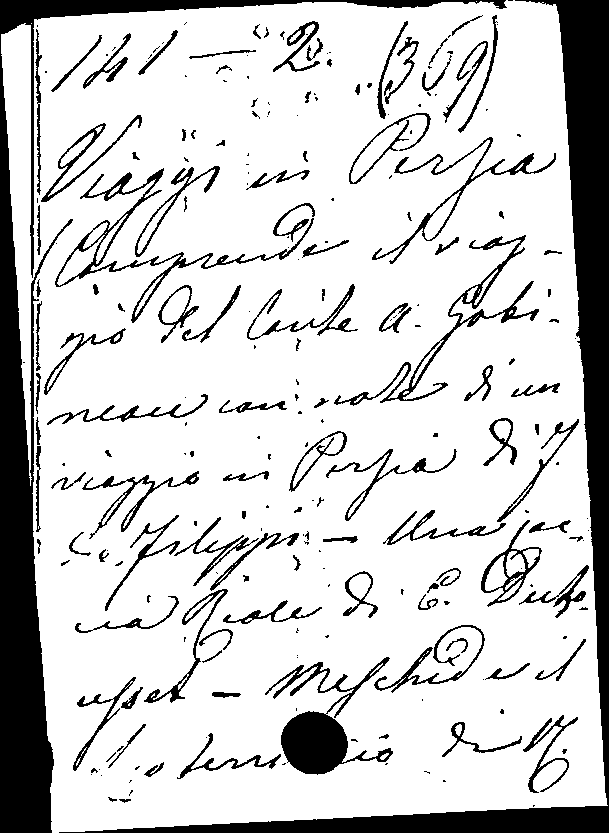 141 — 2. (369)
Viaggi in Persia
(Comprende il viag-
gio del Conte A. Gobi-
neau con note di un
viaggio in Persia di F.
de Filippi — Una cac-
cia Reale di E. Duh-
ousset — Meschid e il
suo territorio di N.